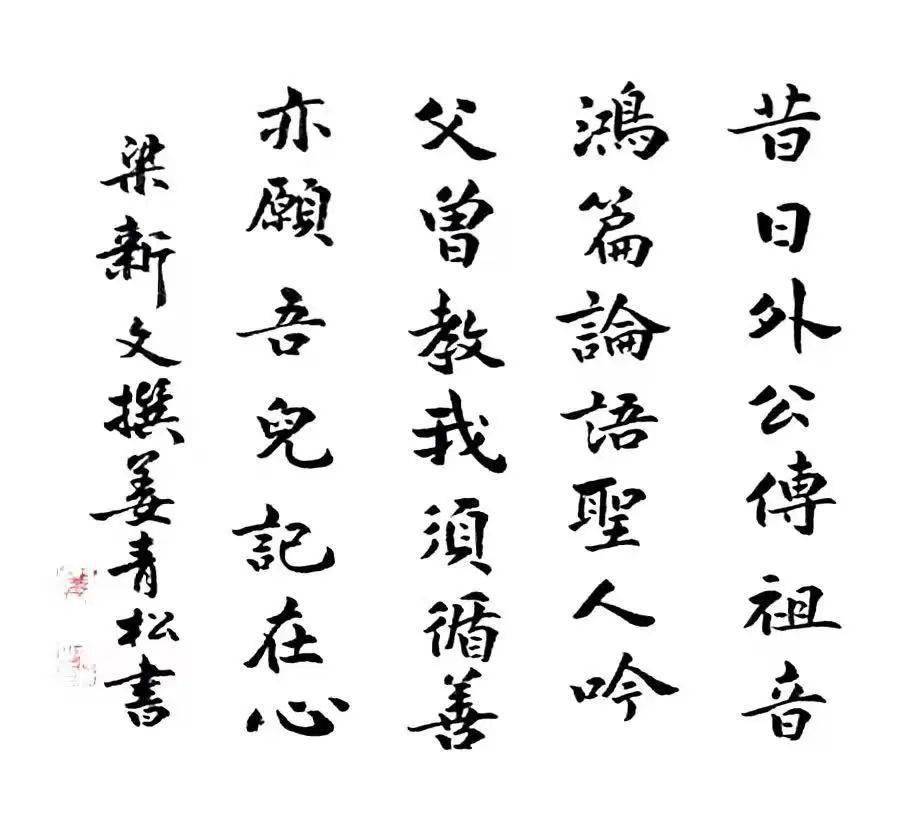 昔日外公傳祖音
鴻篇論語聖人吟
父曾教我須循善
亦願吾兒記在心
梁新文撰姜青松書